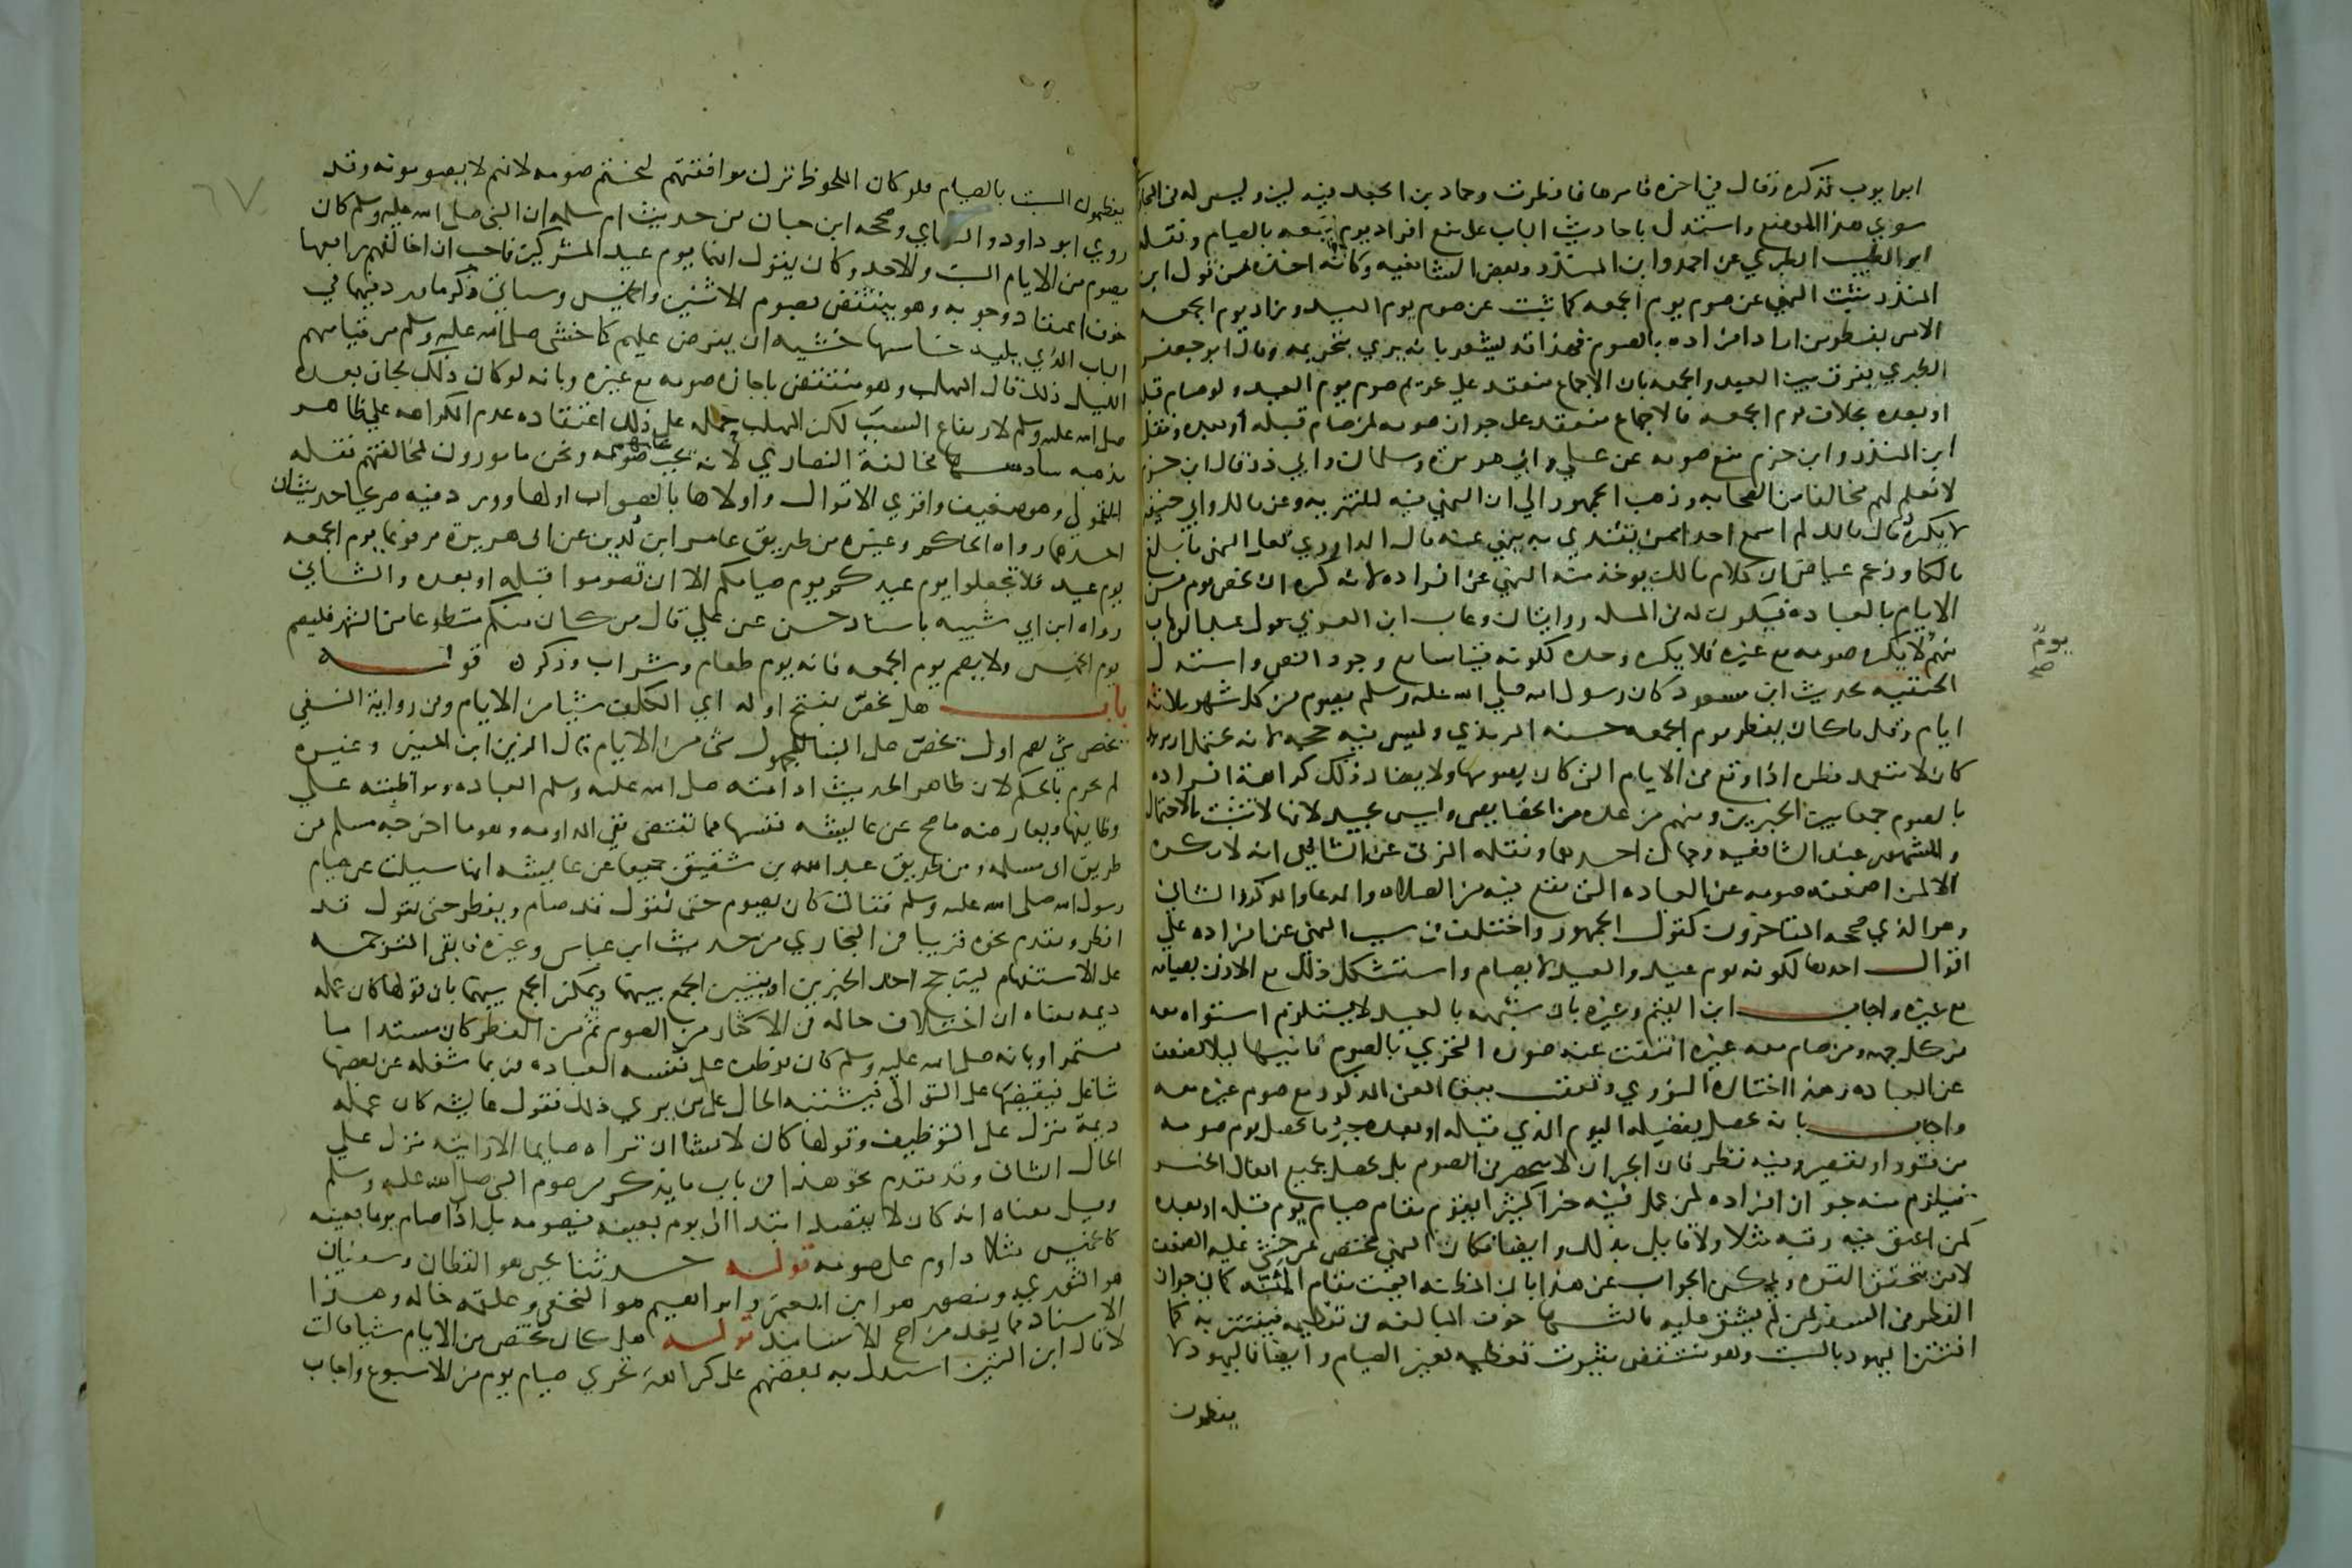 ابو ايوب فذكره وقال في اخره فامرها فافطرت وحماد بن الجعد فيه لين وليس له في البخاري
سوي هذا الموضع واستدل باحاديث الباب على منع افراد يوم الجمعه بالصيام ونقله
ابو الطيب الطبري عن احمد وابن المنذر وبعض الشافعيه وكانه اخذه من قول ابن
المنذر يثبت النهي عن صوم يوم الجمعه كما ثبت عن صوم يوم العيد وزاد يوم الجمعه
الامر بفطر من اراد افراده بالصوم فهذا قد يشعر بانه يري بتحريمه وقال ابو جعفر
الطبري يفرق بين العيد والجمعه بان الاجماع منعقد علي تحريم صوم يوم العيد ولو صام قبله
او بعده بخلاف يوم الجمعه فالاجماع منعقد على جواز صومه لمن صام قبله أو بعده ونقل
ابن المنذر وابن حزم منع صومه عن علي وابي هريره وسلمان وابي ذر قال ابن حزم
لا نعلم لهم مخالفا من الصحابه وذهب الجمهور الي ان النهي فيه للتنزيه وعن مالك وابي حنيفه
لا يكره قال مالك لم اسمع احدا ممن يقتدي به ينهي عنه قال الداودي لعل النهي ما بلغ
مالكا وزعم عياض ان كلام مالك يوخذ منه النهي عن افراده لانه كره ان يخص يوم من
الايام بالعباده فيكون له في المسله روايتان وعاب ابن العربي قول عبد الوهاب
منهم لا يكره صومه مع غيره فلا يكره وحده لكونه قياسا مع وجود النص واستدل
يومٌ
صح
الحنفيه بحديث ابن مسعود كان رسول الله صلي الله عليه وسلم يصوم من كل شهر ثلاثه
ايام وقل ما كان يفطر يوم الجمعه حسنه الترمذي وليس فيه حجه لانه يحتمل ان يريد
كان لا يتعمد فطره اذا وقع في الايام التي كان يصومها ولا يضاد ذلك كراهة افراده
بالصوم جمعا بين الخبرين ومنهم من عده من الخصايص وليس بجيد لانها لا تثبت بالاحتمال
والمشهور عند الشافعيه وجهان احدهما ونقله المزني عن الشافعي انه لا يكره
الا لمن اضعفه صومه عن العباده التي تقع فيه من الصلاه والدعا والذكر والثاني
وهو الذي صححه المتاخرون كقول الجمهور واختلف في سبب النهي عن افراده علي
اقوال احدها لكونه يوم عيد والعيد لا يصام واستشكل ذلك مع الاذن بصيامه
مع غيره واجاب ابن القيم وغيره بان شبهه بالعيد لا يستلزم استواه معه
من كل جهه ومن صام معه غيره انتفت عنه صوره التحري بالصوم ثانيها ليلا يضعف
عن العباده وهذا اختاره النووي وتعقب ببقا المعنى المذكور مع صوم غيره معه
واجاب بانه يحصل بفضيله اليوم الذي قبله او بعده جبر ما يحصل يوم صومه
من فتور او تقصير وفيه نظر فان الجبران لا ينحصر في الصوم بل يحصل بجميع افعال الخير
فيلزم منه جواز افراده لمن عمل فيه خيرا كثيرا يقوم مقام صيام يوم قبله او بعده
كمن اعتق فيه رقبه مثلا ولا قايل بذلك وايضا فكان النهي يختص بمن خشي عليه الضعف
لا من يتحقق القوه ويمكن الجواب عن هذا بان المظنه اقيمت مقام المئنه كما في جواز
الفطر في السفر لمن لم يشق عليه ثالثها خوف المبالغه في تعظيمه فيفتتن به كما
افتتن اليهود بالسبت وهو منتقض بثبوت تعظيمه بغير الصيام وايضا فاليهود لا
يعظمون
٦٧
يعظمون السبت بالصيام فلو كان الملحوظ ترك موافقتهم لتحتم صومه لانهم لا يصومونه وقد
روي ابو داود والنساي وصححه ابن حبان من حديث ام سلمه ان النبي صلى الله عليه وسلم كان
يصوم من الايام السبت والاحد وكان يقول انهما يوم عيد المشركين فاحب ان اخالفهم رابعها
خوف اعتقاد وجوبه وهو ينتقض بصوم الاثنين والخميس وسياتي ذكر ما ورد فيهما في
الباب الذي يليه خامسها خشيه ان يفرض عليهم كما خشي صلى الله عليه وسلم من قيامهم
الليل ذلك قال المهلب وهو منتقض باجازه صومه مع غيره وبانه لو كان ذلك لجاز بعده
صلى الله عليه وسلم لارتفاع السبب لكن المهلب حمله على ذلك اعتقاده عدم الكراهه علي ظاهر
مذهبه سادسها مخالفة النصاري لانه يجب عليهم صومه ونحن مامورون لمخالفتهم نقله
القمولي وهو ضعيف واقوي الاقوال واولاها بالصواب اولها وورد فيه صريحا حديثان
احدهما رواه الحاكم وغيره من طريق عامر ابن لُدين عن ابي هريرة مرفوعا يوم الجمعه
يوم عيد فلا تجعلوا يوم عيدكم يوم صيامكم الا ان تصوموا قبله او بعده والثاني
رواه ابن ابي شيبه باسناد حسن عن علي قال من كان منكم متطوعا من الشهر فليصم
يوم الخميس ولا يصم يوم الجمعه فانه يوم طعام وشراب وذكر قوله
باب هل يخص بفتح اوله اي المكلف شيا من الايام وفي رواية النسفي
يخص شي بضم اول يخص على البنا للمجهول شي من الايام قال الزين ابن المنير وغيره
لم يجزم بالحكم لان ظاهر الحديث ادامته صلى الله عليه وسلم العباده ومواظبته علي
وظايفها ويعارضه ما صح عن عايشه نفسها مما تقتضي نفي المداومه وهو ما اخرجه مسلم من
طريق ابي سلمه ومن طريق عبد الله بن شقيق جميعا عن عايشه انها سيلت عن صيام
رسول الله صلى الله عليه وسلم فقالت كان يصوم حتى نقول قد صام ويفطر حتى نقول قد
افطر وتقدم نحوه قريبا في البخاري من حديث ابن عباس وغيره فابقى الترجمه
على الاستفهام ليترجح احد الخبرين او يتبين الجمع بينهما ويمكن الجمع بينهما بان قولها كان عمله
ديمه معناه ان اختلاف حاله في الاكثار من الصوم ثم من الفطر كان مستداما
مستمرا وبانه صلى الله عليه وسلم كان يوظف على نفسه العباده فربما شغله عن بعضها
شاغل فيقضيها على التوالي فيشتبه الحال على من يري ذلك فقول عايشه كان عمله
ديمة منزل على التوظيف وقولها كان لا تشا ان تراه صايما الا رايته منزل علي
الحال الثاني وقد تقدم نحو هذا في باب ما يذكر من صوم النبي صلى الله عليه وسلم
وقيل معناه انه كان لا يقصد ابتدا الى يوم بعينه فيصومه بل اذا صام يوما بعينه
كالخميس مثلا داوم على صومه قوله حدثنا يحيى هو القطان وسفيان
هو الثوري ومنصور هو ابن المعتمر وابراهيم هو النخعي وعلقمه خاله وهذا
الاسناد مما يعد من اصح الاسانيد قوله هل كان يختص من الايام شيا قالت
لا قال ابن التين استدل به بعضهم على كراهة تحري صيام يوم من الاسبوع واجاب